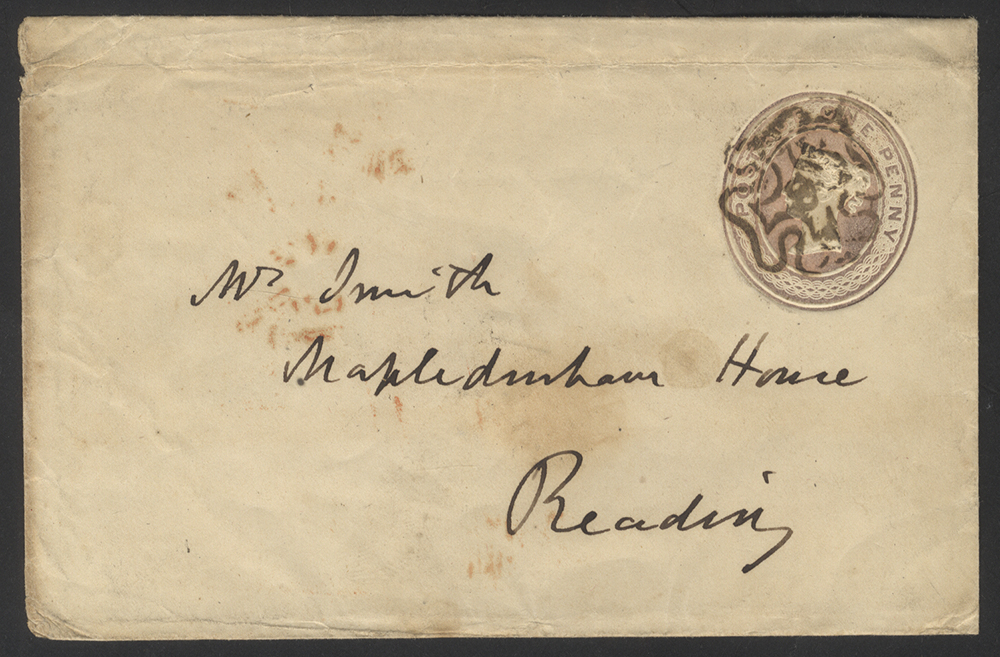 POSTAGE ONE PENNY
Mr Smith
Mapledurham House
Reading